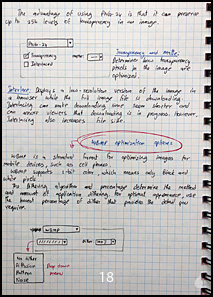 The advantage of using PNG-24 is that it can preserve
up to 256 levels of transparency in an image.
PNG-24
Transparency
Interlaced
Matte:
Transparency and matte:
Determine how transparency
pixels in the image are
optimized.
Interlace: Displays a low-resolution version of the image in
a browser while the full image file is downloading.
Interlacing can make downloading time seem shorter and
can assure viewers that downloading is in progress. However,
interlacing also increases file size.
WBMP optimization options
WBMP is a standard format for optimizing images for
mobile devices, such as cell phones.
WBMP supports 1-bit color, which means only black and
white pixels.
The Dithering algorithm and percentage determine the method
and amount of application dithering. For optimal appearance, use
the lowest percentage of dither that provides the detail you
require.
WBMP
Dither:
No Dither
Diffusion
Pattern
Noise
Drop down
menu
18